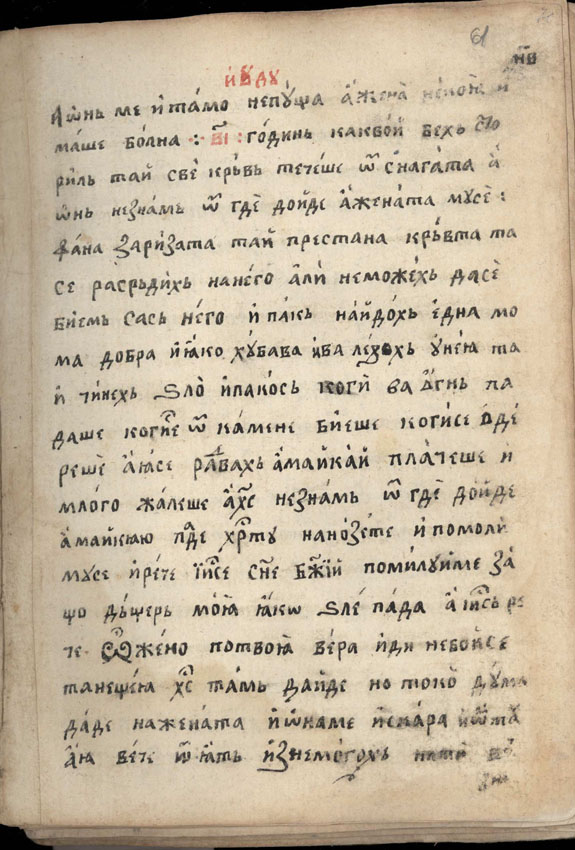 61
н҃в
июду
Аѡнь ме и тамо непꙋща а жена некои
маше болна : в҃і : годинь каквой бехь сто
риль тай све крьвь течеше ѿ снагата а
ѡнь незнамь ѿ где дойде а жената мусе :
фана заризата тай престана крьвта та
се расрьдихь нанего али неможехь дасе
бием сась него и пакь найдохь една мо
ма добра и ꙗко хубава ива лезохь унею та
и чинехь ѕло ипакось коги ва ѡгнь па
даше когисе ѿ камене биеше когисе ѡде
реше а ꙗ се равахь а майкай плачеше и
млого жалеше а х҃с незнамь ѿ где дойде
а майкию паде хр҃ту нанозете и помоли
мусе и рече і҃исе с҃не б҃жїй помилуйме за
що дьщерь моꙗ ꙗкѡ ѕле пада а і҃ись ре
че ѽ жено потвоꙗ вера иди небойсе
танещеꙗ х҃с тамь дайде но токо дума
даде нажената и ѡнаме искара и ѿ тꙋ
аꙗ вече ѿ ꙗть изнемогохь